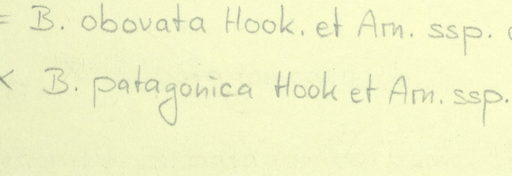 = B. obovata Hook. et Arn. ssp.
× B. patagonica Hook et Arn. ssp.